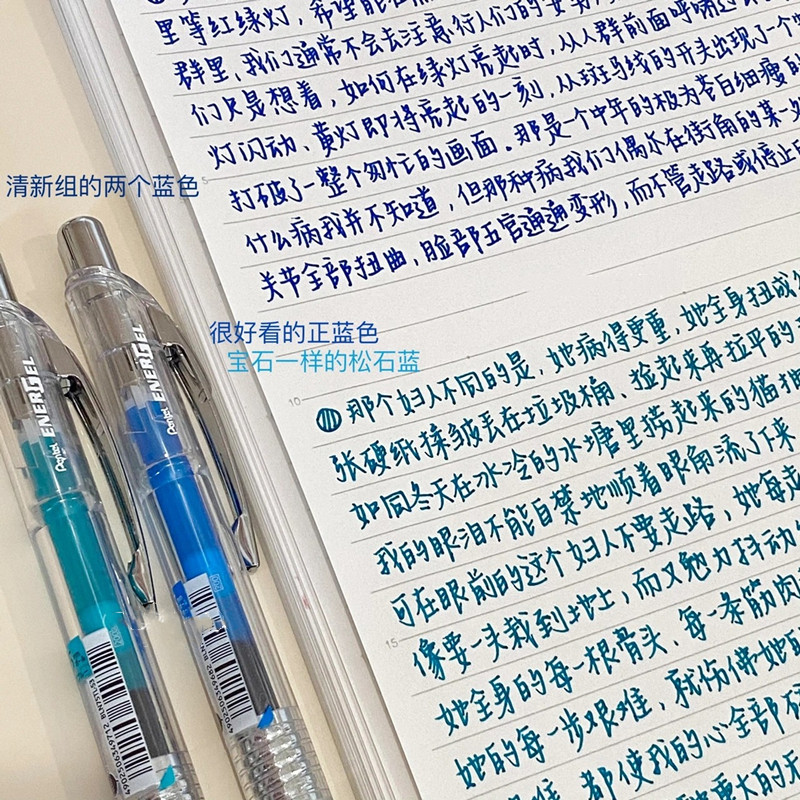 里等红绿灯,希望能在
群里,我们通常不会去注意行人们的
们只是想着,如何在绿灯亮起时,从人群前面呼啸过
灯闪动、黄灯即将亮起的一刻,从斑马线的开头出现了一个
打破了一整个匆忙的画面。那是一个中年的极为苍白细瘦的
什么病我并不知道,但那种病我们偶尔在街角的某一
关节全部扭曲,脸部五官通通变形,而不管走路或停止
清新组的两个蓝色
很好看的正蓝色
宝石一样的松石蓝
10
那个妇人不同的是,她病得更重,她全身扭成
张硬纸揉皱丢在垃圾桶、捡起来再拉平的
如同冬天在冰冷的水塘里捞起来的猫
我的眼泪不能自禁地顺着眼角流了下来
可在眼前的这个妇人不要走路,她每走
15
像要一头栽到地上,而又勉力抖动
她全身的每一根骨头、每一条筋肉
她的每一步艰难,就仿佛她的
都使我的心全部
重大的
Pentel ENERGEL
Pentel ENERGEL
4902506349712 BLN75TL-S3
4902506349682 BLN